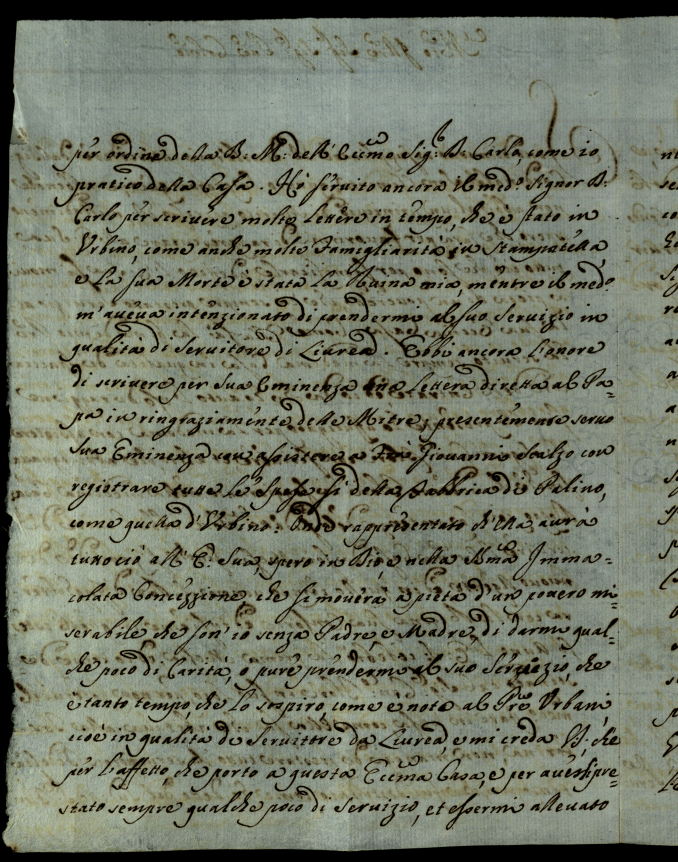 per ordine della B: M: dell' Eccmo Sig:r D: Carlo, come io
pratico della Casa. Hò servito ancora il med:o Signor D:
Carlo per scrivere molte Lettere in tempo, che è stato in
Urbino, come anche molte Famigliarità in Stampatella,
e La sua Morte è stata La Ruina mia, mentre il med:o
m'aveva intenzionato di prendermi al suo Servizio in
qualità di Servitore di Livrea. Ebbi ancora L'onore
di scrivere per Sua Eminenza una Lettera diretta al Pa=
pa in ringraziamento delle Mitre; presentemente servo
Sua Eminenza con assistere a Frà Giovanni Scalzo con
registrare tutte Le Spese sì della Fabbrica di Palino,
come quella d'Urbino: Onde rappresentato ch'ella avrà
tutto ciò all' E: Sua, spero in Dio, e nella Bma Imma=
colata Concezzione, che si moverà a pietà d'un povero mi=
serabile che son' io senza Padre, e Madre, di darmi qual=
che poco di Carità, o pure prendermi al suo Servizio, che
è tanto tempo, che Lo sospiro, come è noto al Pre Urbani,
cioè in qualità di Servittre da Livrea, e mi creda V: che
per L'affetto, che porto a questa Eccma Casa, e per avessi pre=
stato sempre qualche poco di Servizio, et essermi allevato